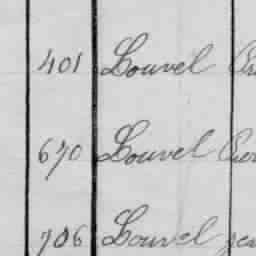 401 Louvel
670 Louvel
706 Louvel